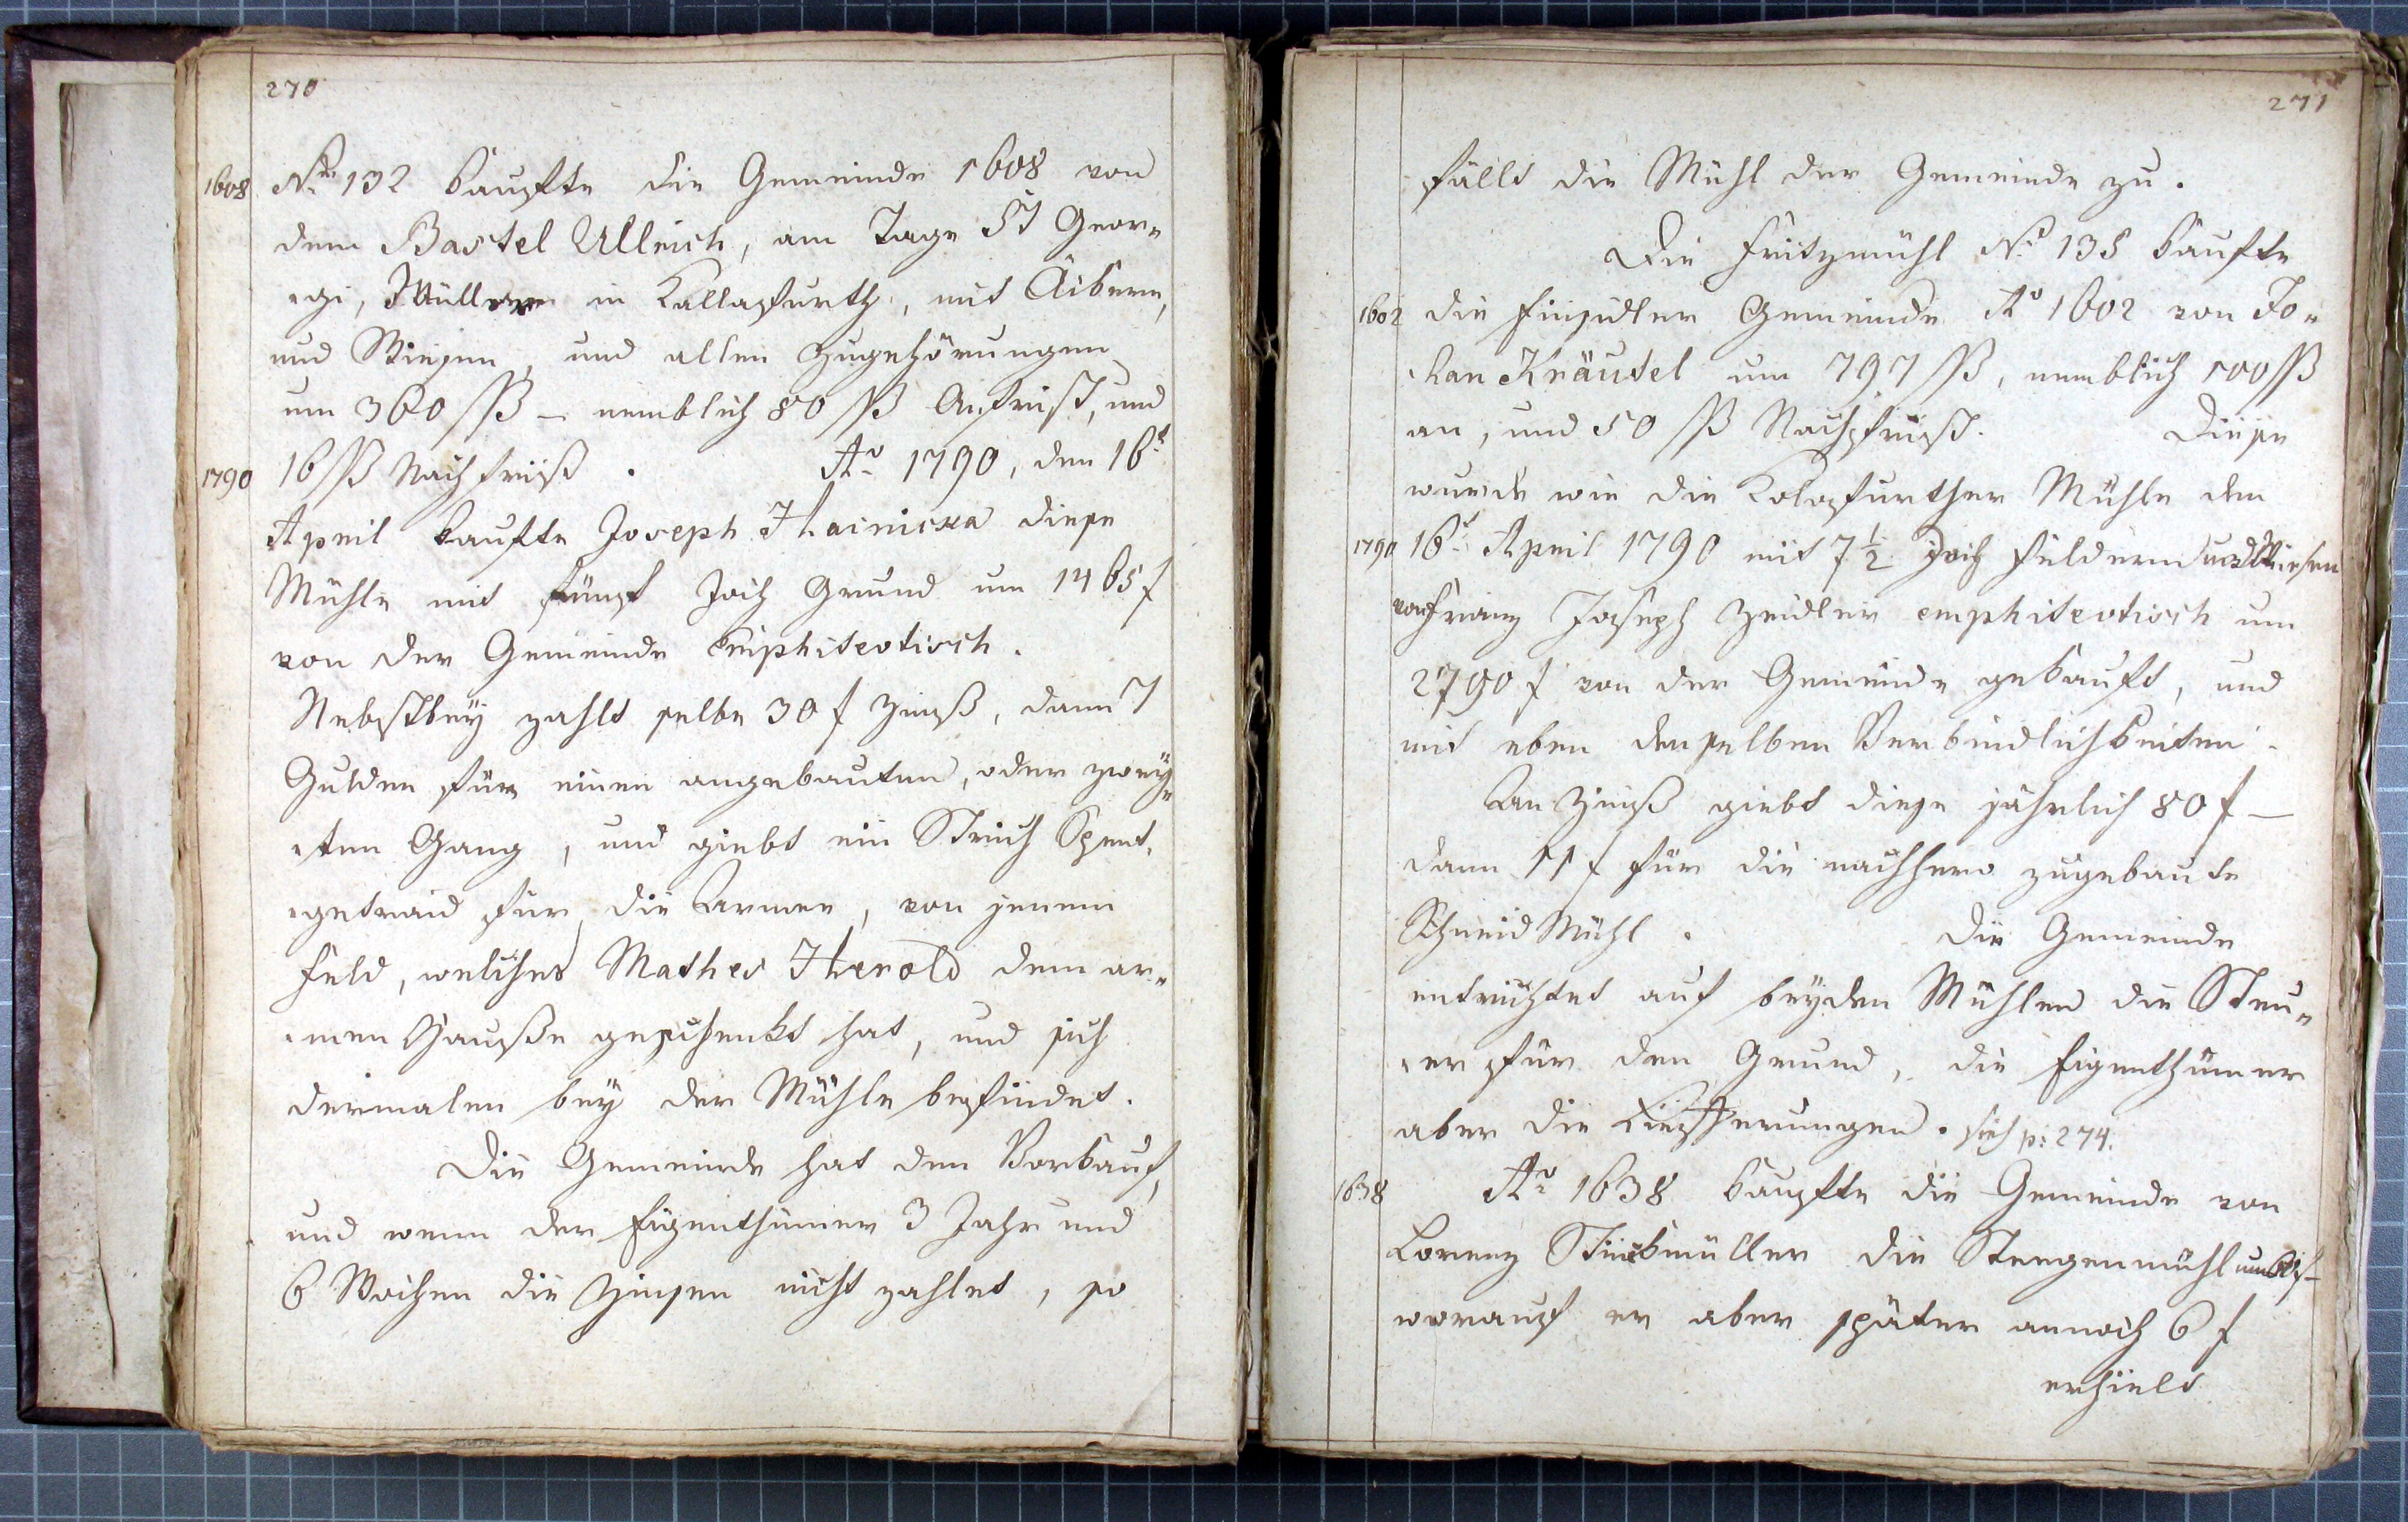 270
1608 No 132 kaufte die Gemeinde 1608 von
dem Bastel Ullrich, am Tage St Geor„
„gi, Müller in Kallafurth, mit Äckern,
und Wiesen, und allen Zugehörungen
um 360 ßß – nemblich 80 ßß Anfrist, und
1790 16 ßß Nachfriß. Ao 1790, den 16t
April kaufte Joseph Hainicka diese
Mühle mit fünf Joch Grund um 1465 f
von der Gemeinde Emphiteotisch.
Nebstbey zahlt selbe 30 f Zinß, dann 7
Gulden für einen angebauten, oder zwey„
„ten Gang, und giebt ein Strich Spend„
„getraid für die Armen, von jenem
Feld, welches Mathes Herold dem ar„
„men Hauße geschenkt hat, und sich
dermalen bey der Mühle befindet.
Die Gemeinde hat den Vorkauf,
und wenn der Eigenthümer 3 Jahr und
6 Wochen die Zinsen nicht zahlet, so
271
fällt die Mühl der Gemeinde zu.
Die Fritzmühl No 135 kaufte
1602 die Einsidler Gemeinde Ao 1602 von Jo„
„han Kräutel um 797 ßß, nemblich 100 ßß
an, und 50 ßß Nachfrist. Diese
wurde wie die Kolafurther Mühle den
1790 16t April 1790 mit 7 1/2 Joch Feldern und Wiesen
von Franz Joseph Zeidler emphiteotisch um
2790 f von der Gemeinde gekauft, und
mit eben denselben Verbindlichkeiten.
An Zinß giebt diese jährlich 80 f –
dann 11 f für die nachhero zugebaute
Schneid Mühl. Die Gemeinde
entrichtet auf beyden Mühlen die Steu„
„er für den Grund, die Eigenthümer
aber die Lieferungen. sieh p: 274.
1638 Ao 1638 kaufte die Gemeinde von
Lorenz Stückmüller die Stengenmühl um
worauf er aber später annoch 6 f
erhielt